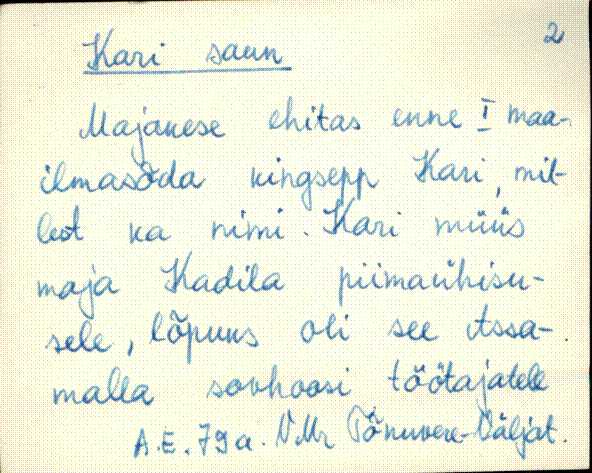 2
Kari saun
Majakese ehitas enne I maa-
ilmasõda kingsepp Kari, mil-
lest ka nimi. Kari müüs
maja Kadila piimaühisu-
sele, lõpuks oli see Assa-
malla sovhoosi töötajatele
A.E. 79a. V.Mr Tõnuvere-Väljat.